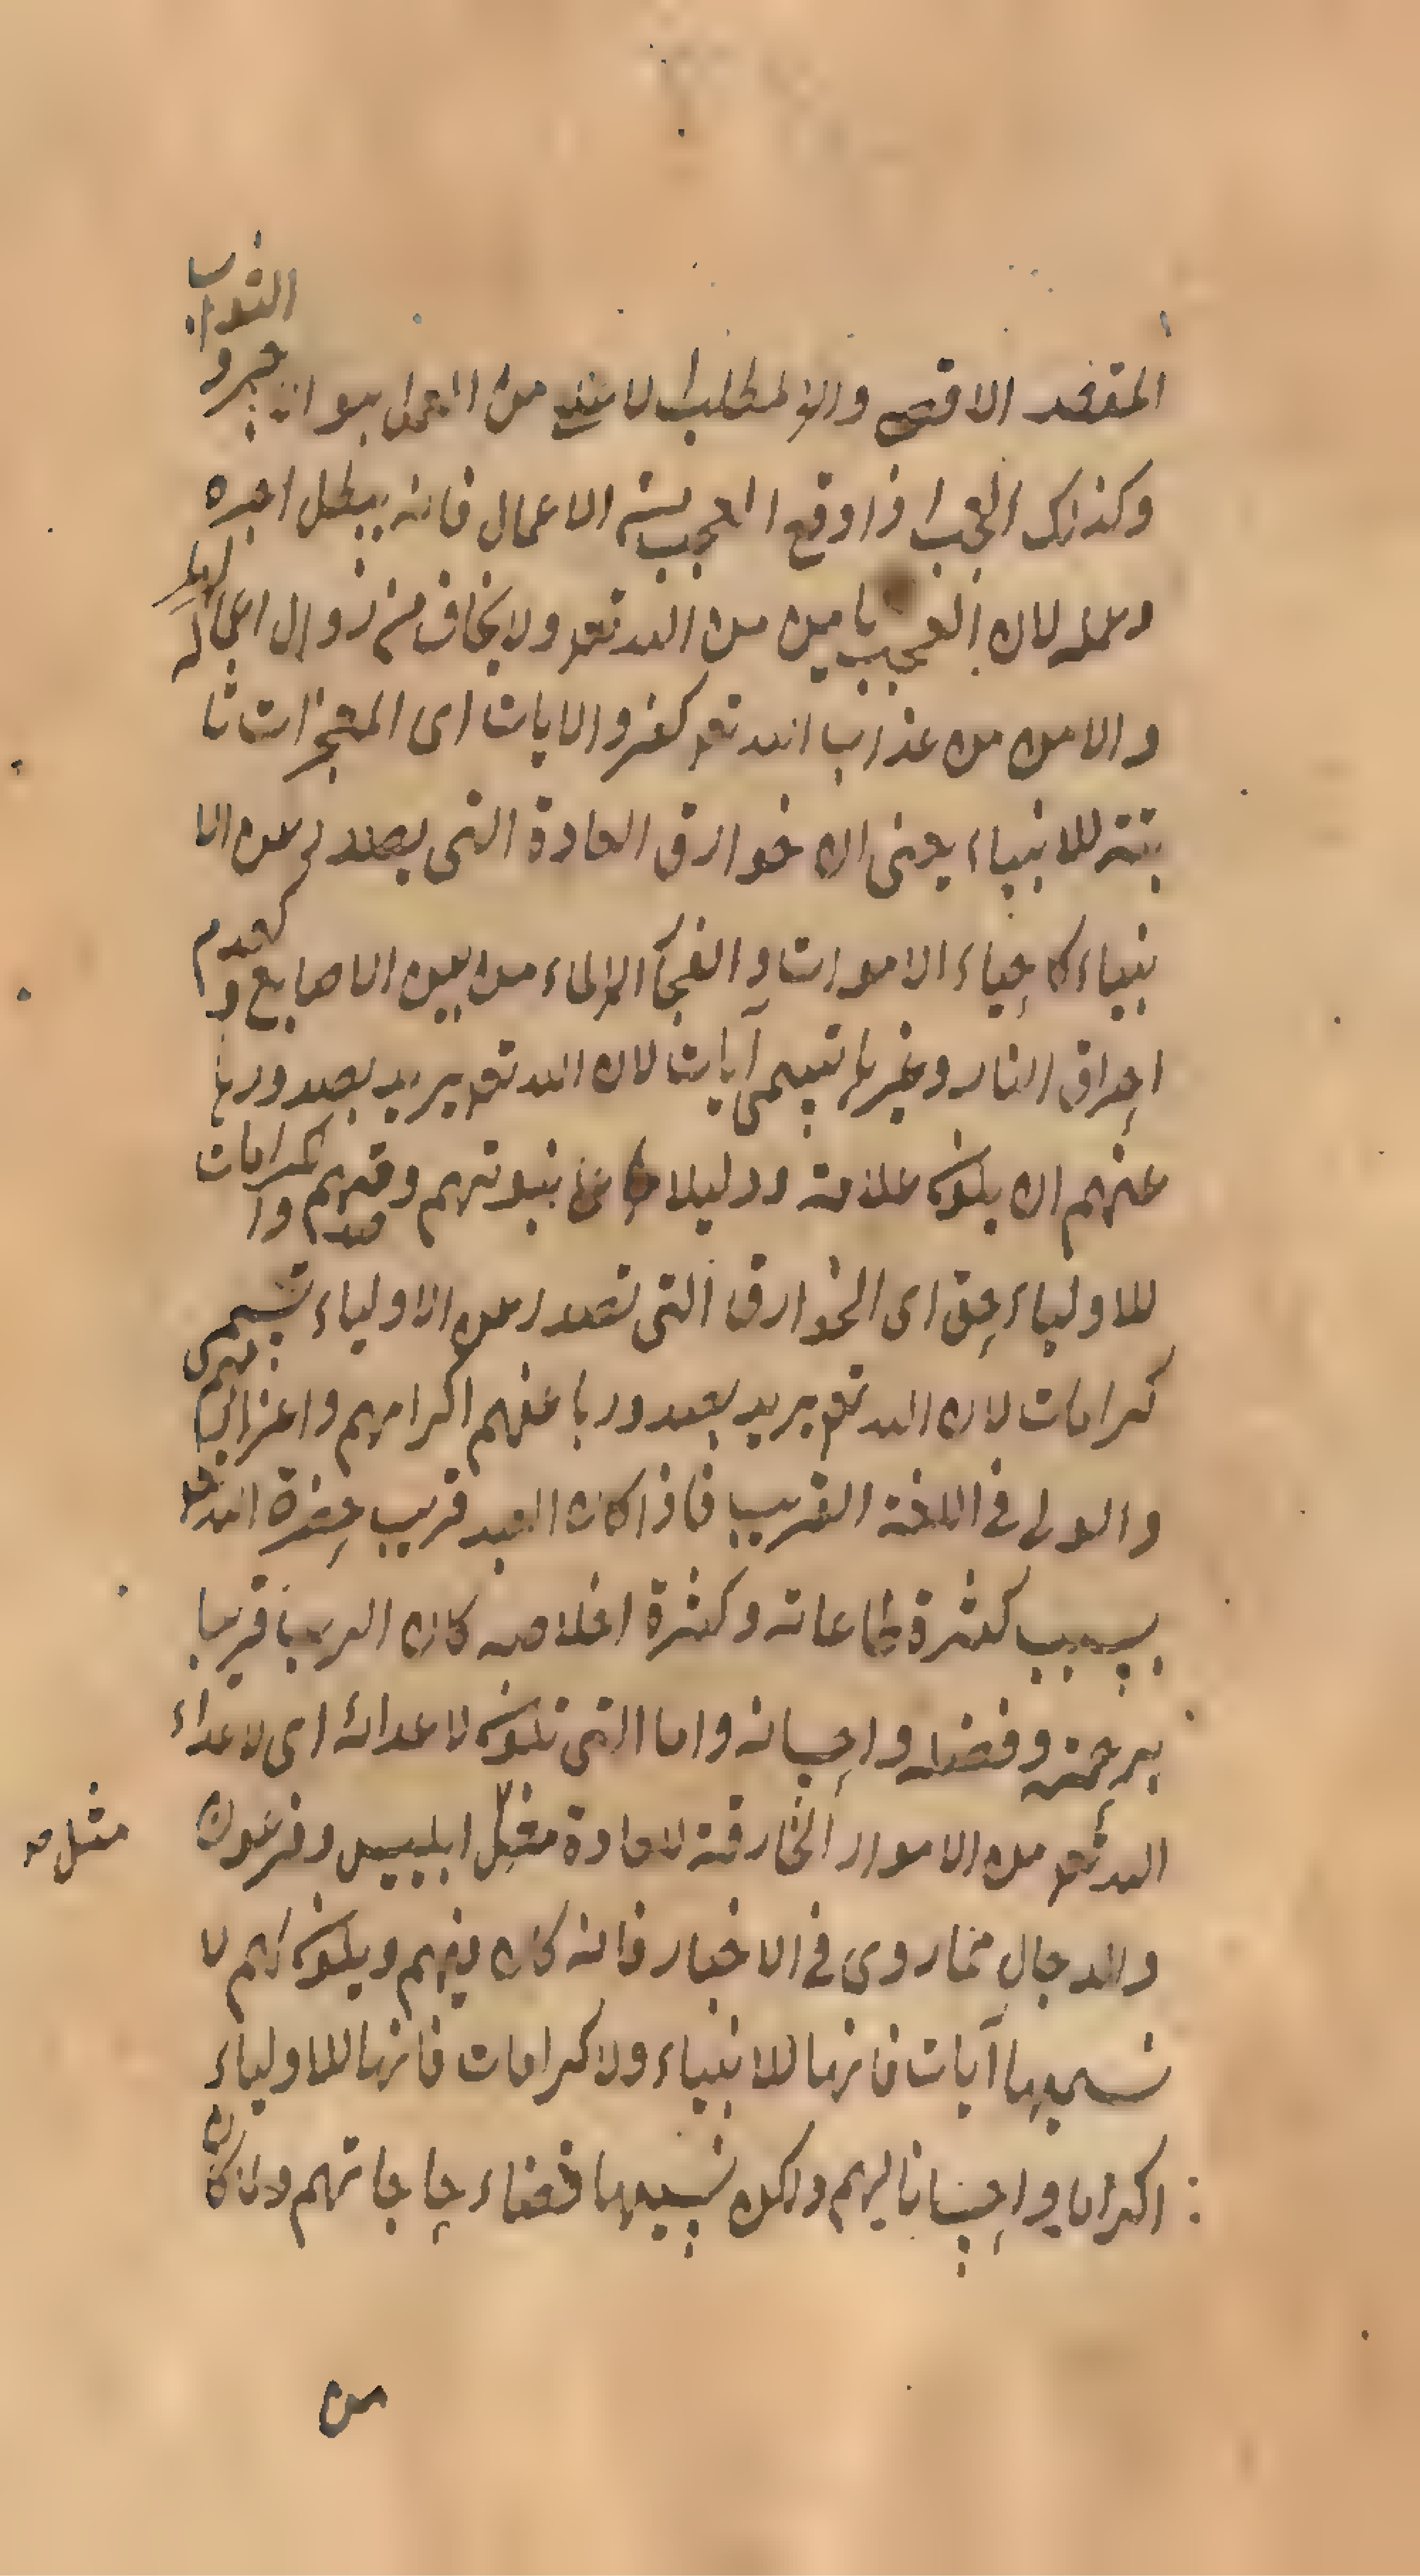 المقصد الاقصى والمطلب الاعلى من العمل هو اخروا الثواب
وكذلك العجب اذا وقع العجب الاعمال فانه يبطل اجره
وعمله لان العجب يأمن من الله تعو ولا يخاف من زوال اعماله
والامن من عذاب الله تعو كفر والايات اى المعجزات ثا
بتة للانبياء يعنى ان خوارق العادة التى يصدر عن الا
نبياء كاحياء الاموات وانفجار الماء من بين الاصابع وعدم
احراق النار وغيرها تسمى آيات لان الله تعو يريد بصدورها
عنهم ان يكون علامة ودليلا على نبوتهم وصدقهم والكرامات
للاولياء حق اى الخوارق التى تصدر عن الاولياء تسمى
كرامات لان الله تعو يريد بصدورها عنهم اكرامهم واعزازهم
والولى فى اللغة القريب فاذا كان العبد قريب حضرة الله تعو
بسبب كثرة طاعاته وكثرة اخلاصه كان الرب قريبا
برحمته وفضله واحسانه واما التى تكون لاعدائه اى لاعداء
الله تعو من الامور الخارقة لعادة مثل ابليس وفرعون
مثل صح
والدجال مما روى فى الاخبار فانه كان فيهم ويكون لهم لا
نسميها آيات فانها للانبياء ولا كرامات فانها للاولياء
اكراما واحسانا لهم ولكن نسميها قضاء حاجاتهم ولان كان
من